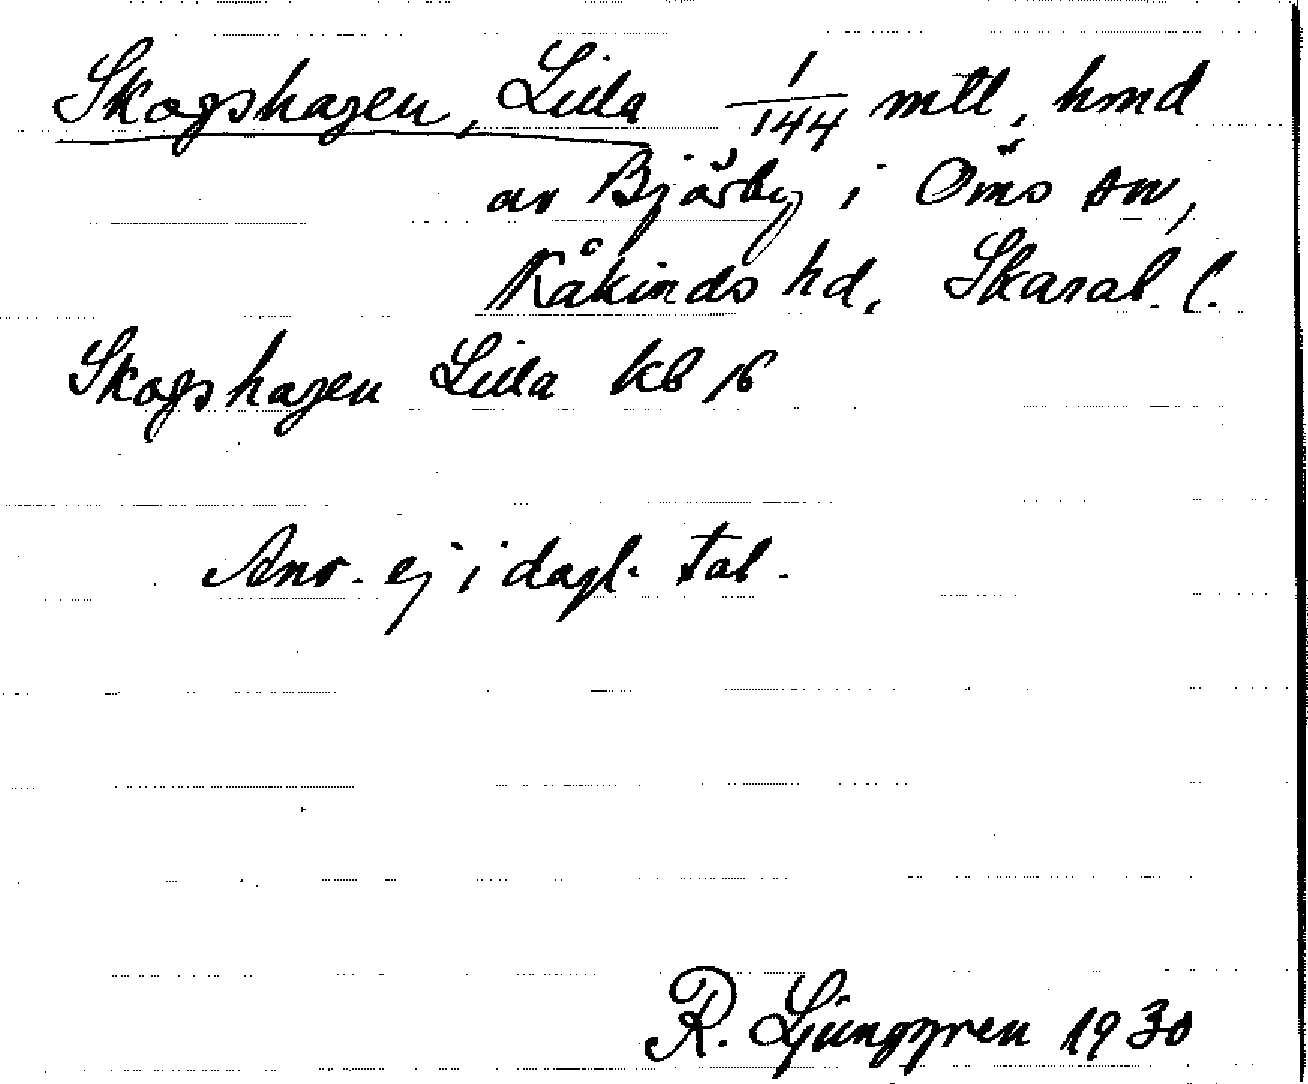 Skogshagen, Lilla 1/144 mtl, hmd
av Bjärby i Öms sn,
Kåkinds hd, Skarab. l.
Skogshagen Lilla kb 16
Anv. ej i dagl. tal.
R. Ljunggren 1930